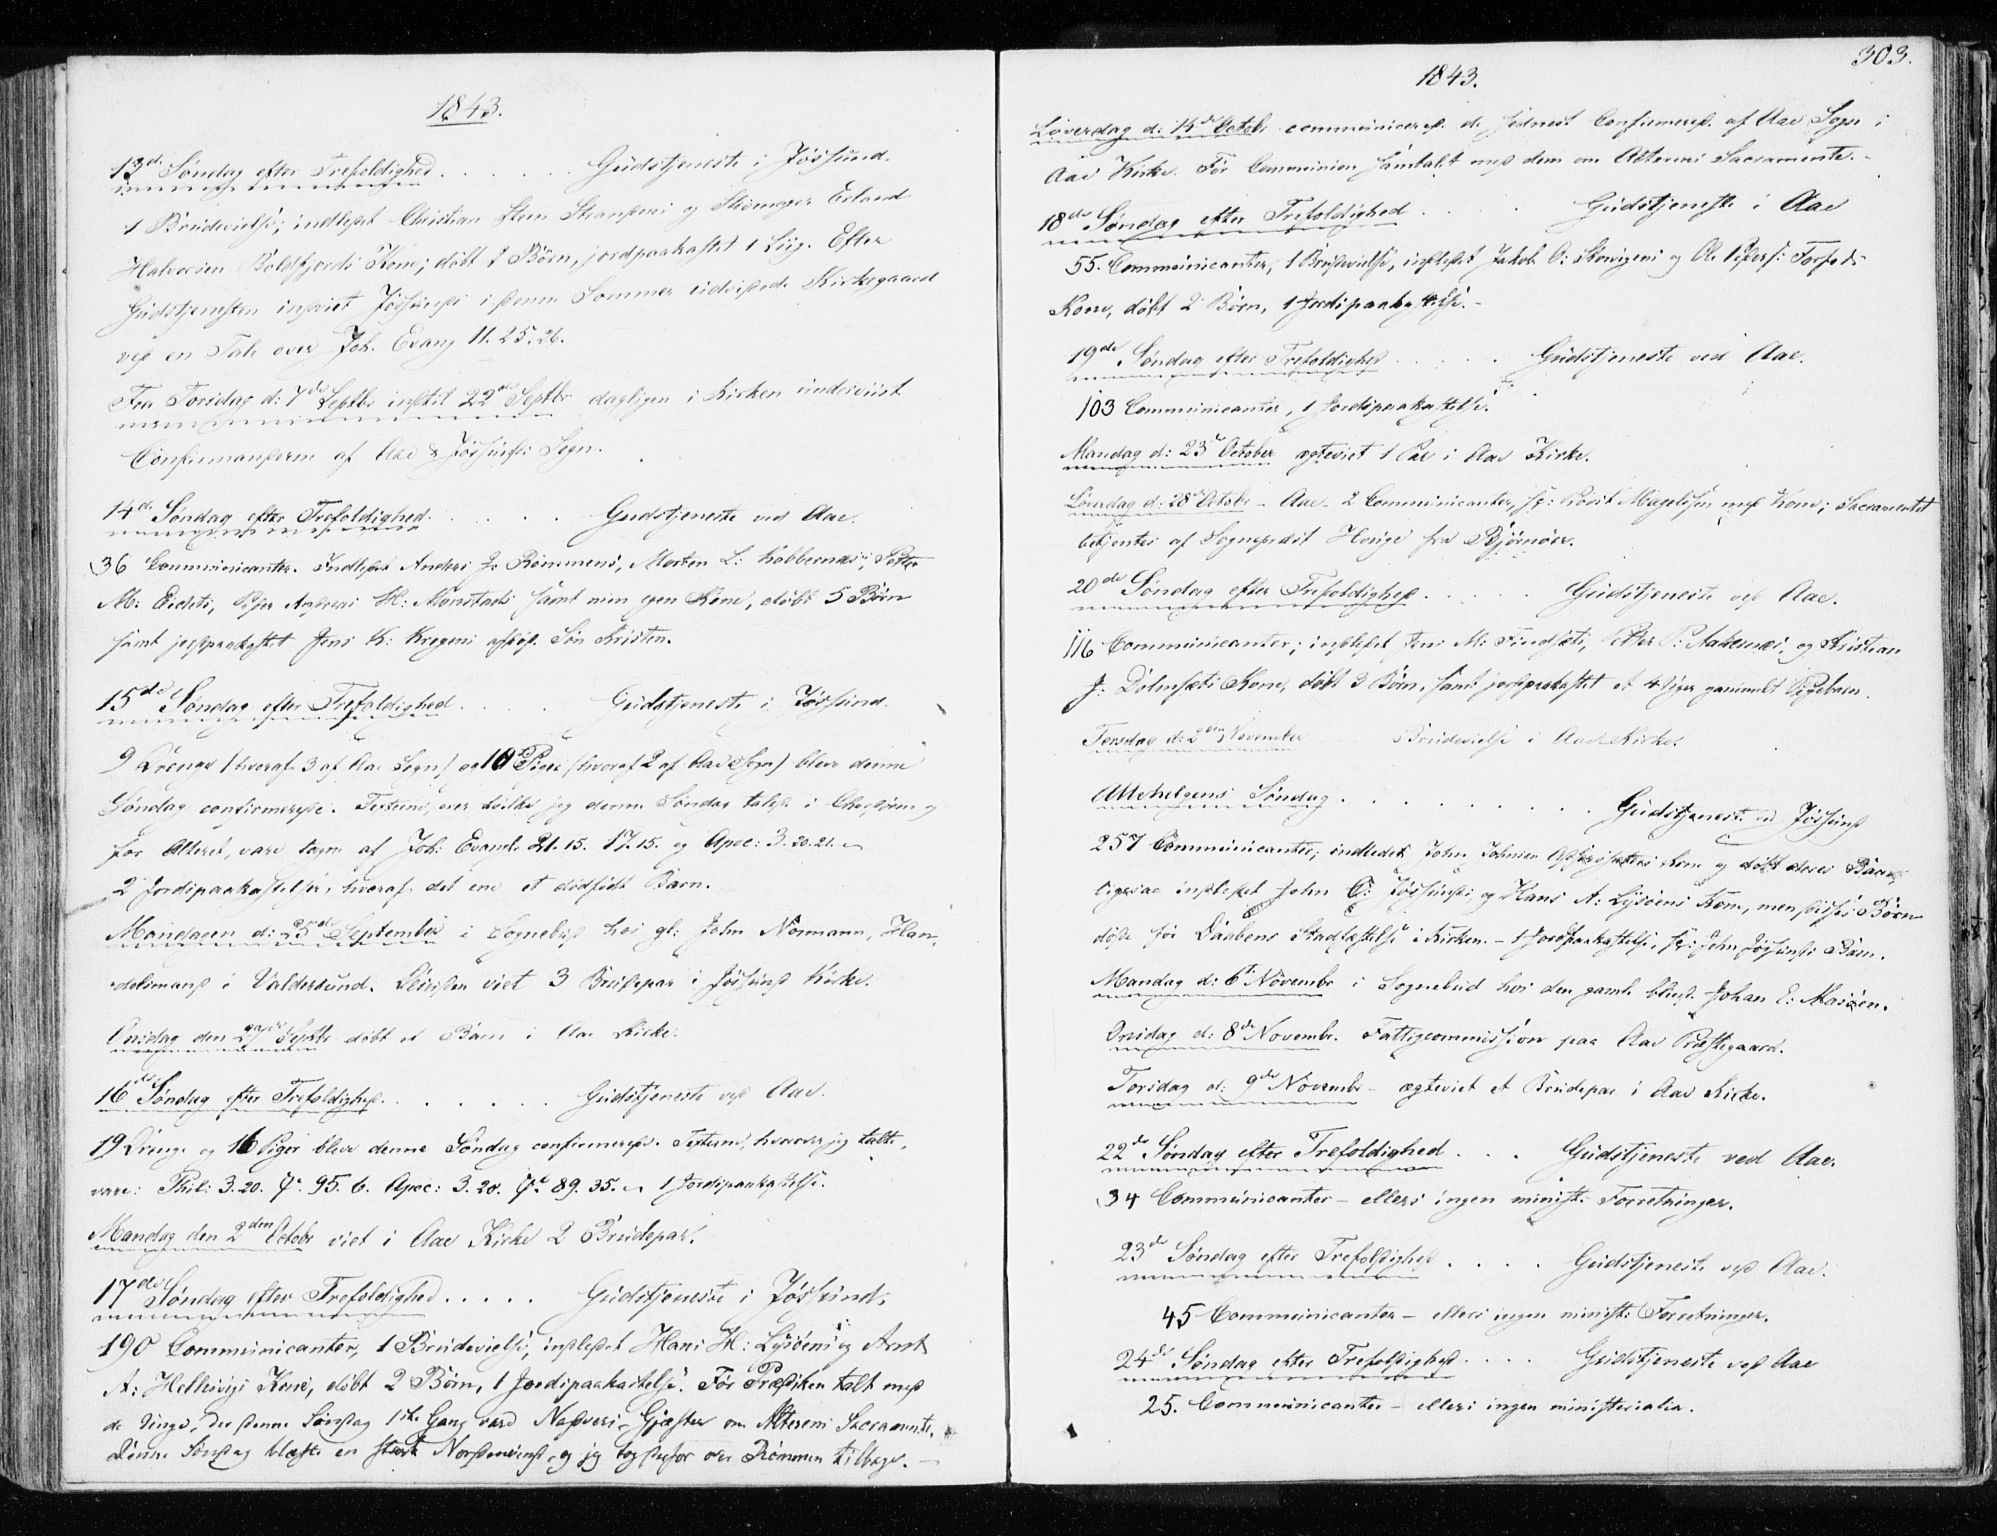 1843.
13de Søndag efter Trefoldighed . . . . . . Gudstjeneste i Jössund.
1 Brudevielse; indledet Christian Steen Stransens og Erland
Halvorsen Boldsfjords Kone; döbt 2 Börn, jordpaakastet 1 Liig. Efter
Gudstjenesten indviet Jössunds i denne Sommer udvidede Kirkegaard
ved en Tale over Joh. Evang 11. 25. 26.
Fra Torsdag d: 7de Septbr indtil 22de Septbr dagligen i Kirken underviist
Confirmanderne af Aae & Jössunds Sogn.
14de Søndag efter Trefoldighed . . . . . Gudstjeneste ved Aae.
36 Communicanter. Indledet Anders J: Rømmens, Morten L: Kobbernæs; Petter
M: Eidets, Peder Andreas H: Monstads samt min egen Kone, döbt 5 Börn
samt jordpaakastet Jens K: Kregens Søn Kristen.
15de Søndag efter Trefoldighed . . . . Gudstjeneste i Jössund.
9 Drenge (hvoraf 3 af Aae Sogn) og 10 Piger (hvoraf 2 af Aae Sogn) bleve denne
Søndag confirmerede. Texterne, over hvilke jeg denne Søndag talede i Chordøren og
for Alteret, vare tagne af Joh: Evang. 21. 15. 17. 15. og Apoc: 3. 20. 21.
2 Jordspaakastelser, hvoraf det ene et dödfödt Barn.
Mandagen d: 25de September i Sognebud hos gl: John Normann, Han-
delsmand i Valdersund. Desuden viet 3 Brudepar i Jössund Kirke.
Onsdag den 27de Septbr döbt et Barn i Aae Kirke.
16de Søndag efter Trefoldighed. . . . . . . Gudstjeneste ved Aae.
19 Drenge og 16 Piger bleve denne Søndag confirmerede. Texterne, hvorover jeg talte,
vare: Phil: 3. 20. Ps. 95. 6. Apoc: 3. 20. Ps. 89. 35. 1 Jordspaakastelse.
Mandag den 2den Octobr viet i Aae Kirke 2 Brudepar.
17de Søndag efter Trefoldighed . . . . . Gudstjeneste i Jössund.
190 Communicanter, 1 Brudevielse, indledet Hans H: Lysöens og Arnt
A: Hellesvigs Kone, döbt 2 Börn, 1 Jordspaakastelse. För Prædiken talt med
de Unge, der denne Søndag 1ste Gang vare Nadverens Gjæster om Alterens Sacramente.
Denne Søndag blæste en stærk Nordenvind, og jeg tog derfor over Rømmen tilbage. –
303.
1843.
Löverdag d: 14de Octobr communicerede de sidst Confirmerede af Aae Sogn i
Aae Kirke. För Communion samtalt med dem om Alterens Sacramente. -
18de Søndag efter Trefoldighed . . . . Gudstjeneste i Aae
55. Communicanter, 1 Brudevielse, indledet Jakob O: Skovigens og Ole Peders:
Kone, döbt 2 Börn, 1 Jordspaakastelse. -
19de Søndag efter Trefoldighed . . . . . Gudstjeneste ved Aae.
103 Communicanter, 1 Jordspaakastelse.
Mandag d: 23de October ægteviet 1 Par i Aae Kirke.
Löverdag d: 28de Octobr - Aae - 2 Communicanter, Hr: Provst Magelssen med Kone; Sacramentet
betjentes af Sognepræst Honge fra Bjørnöer.
20de Søndag efter Trefoldighed . . . . . Gudstjeneste ved Aae.
116 Communicanter; indledet Jens M: Findsæts, Petter P: og Kristian
J: Dolmsæts Kone, döbt 3 Börn, samt jordspaakastet et 4 Uger gammelt Pigebarn.
Torsdag d: 2den November Brudevielse i Aae Kirke.
Allehelgens Søndag . . . . . . . . . Gudstjeneste ved Jössund
257 Communicanter; indledet John Johnsen Kone og döbt deres Barn;
ligesaa indledet John O: Jössunds og Hans A: Lysöens Kone, men disses Börn
döde för Daabens Stadfæstelse i Kirken. - 1 Jordpaakastelse, Hr: John Jössunds Barn.
Mandag d: 6te Novembr i Sognebud hos den gamle blinde Johan E: Masöen.
Onsdag d: 8de Novembr. Fattigcommission paa Aae Præstegaard.
Torsdag d: 9de Novembr - ægteviet et Brudepar i Aae Kirke.
22de Søndag efter Trefoldighed . . . Gudstjeneste ved Aae.
34 Communicanter - ellers ingen minist: Forretninger.
23de Søndag efter Trefoldighed . . . . Gudstjeneste ved Aae.
45 Communicanter - ellers ingen minist: Forretninger.
24de Søndag efter Trefoldighed . . . . Gudstjeneste ved Aae
25. Communicanter - ellers ingen ministerialia.